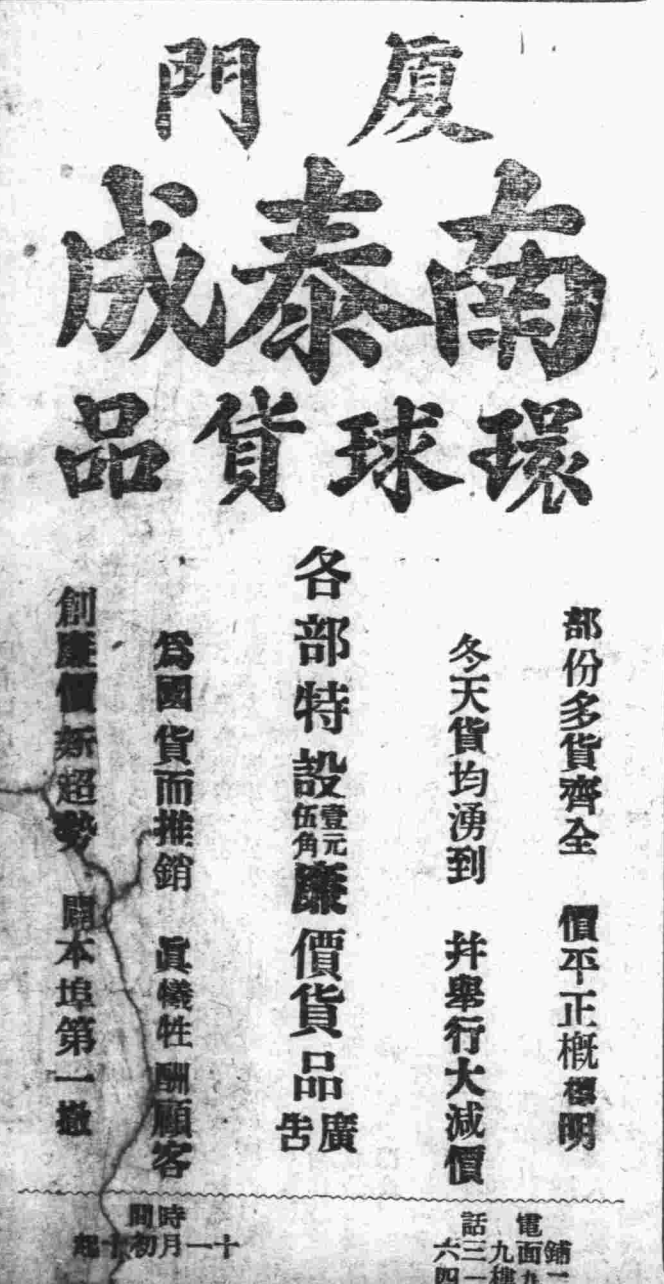 厦門
南泰成
環球貨品
部份多貨齊全　價平正概標明
冬天貨均湧到　幷舉行大減價
各部特設壹元伍角廉價貨品廣告
爲國貨而推銷　眞犧牲酬顧客
創廉價新趨勢　開本埠第一
電話
時間
十一月初十起